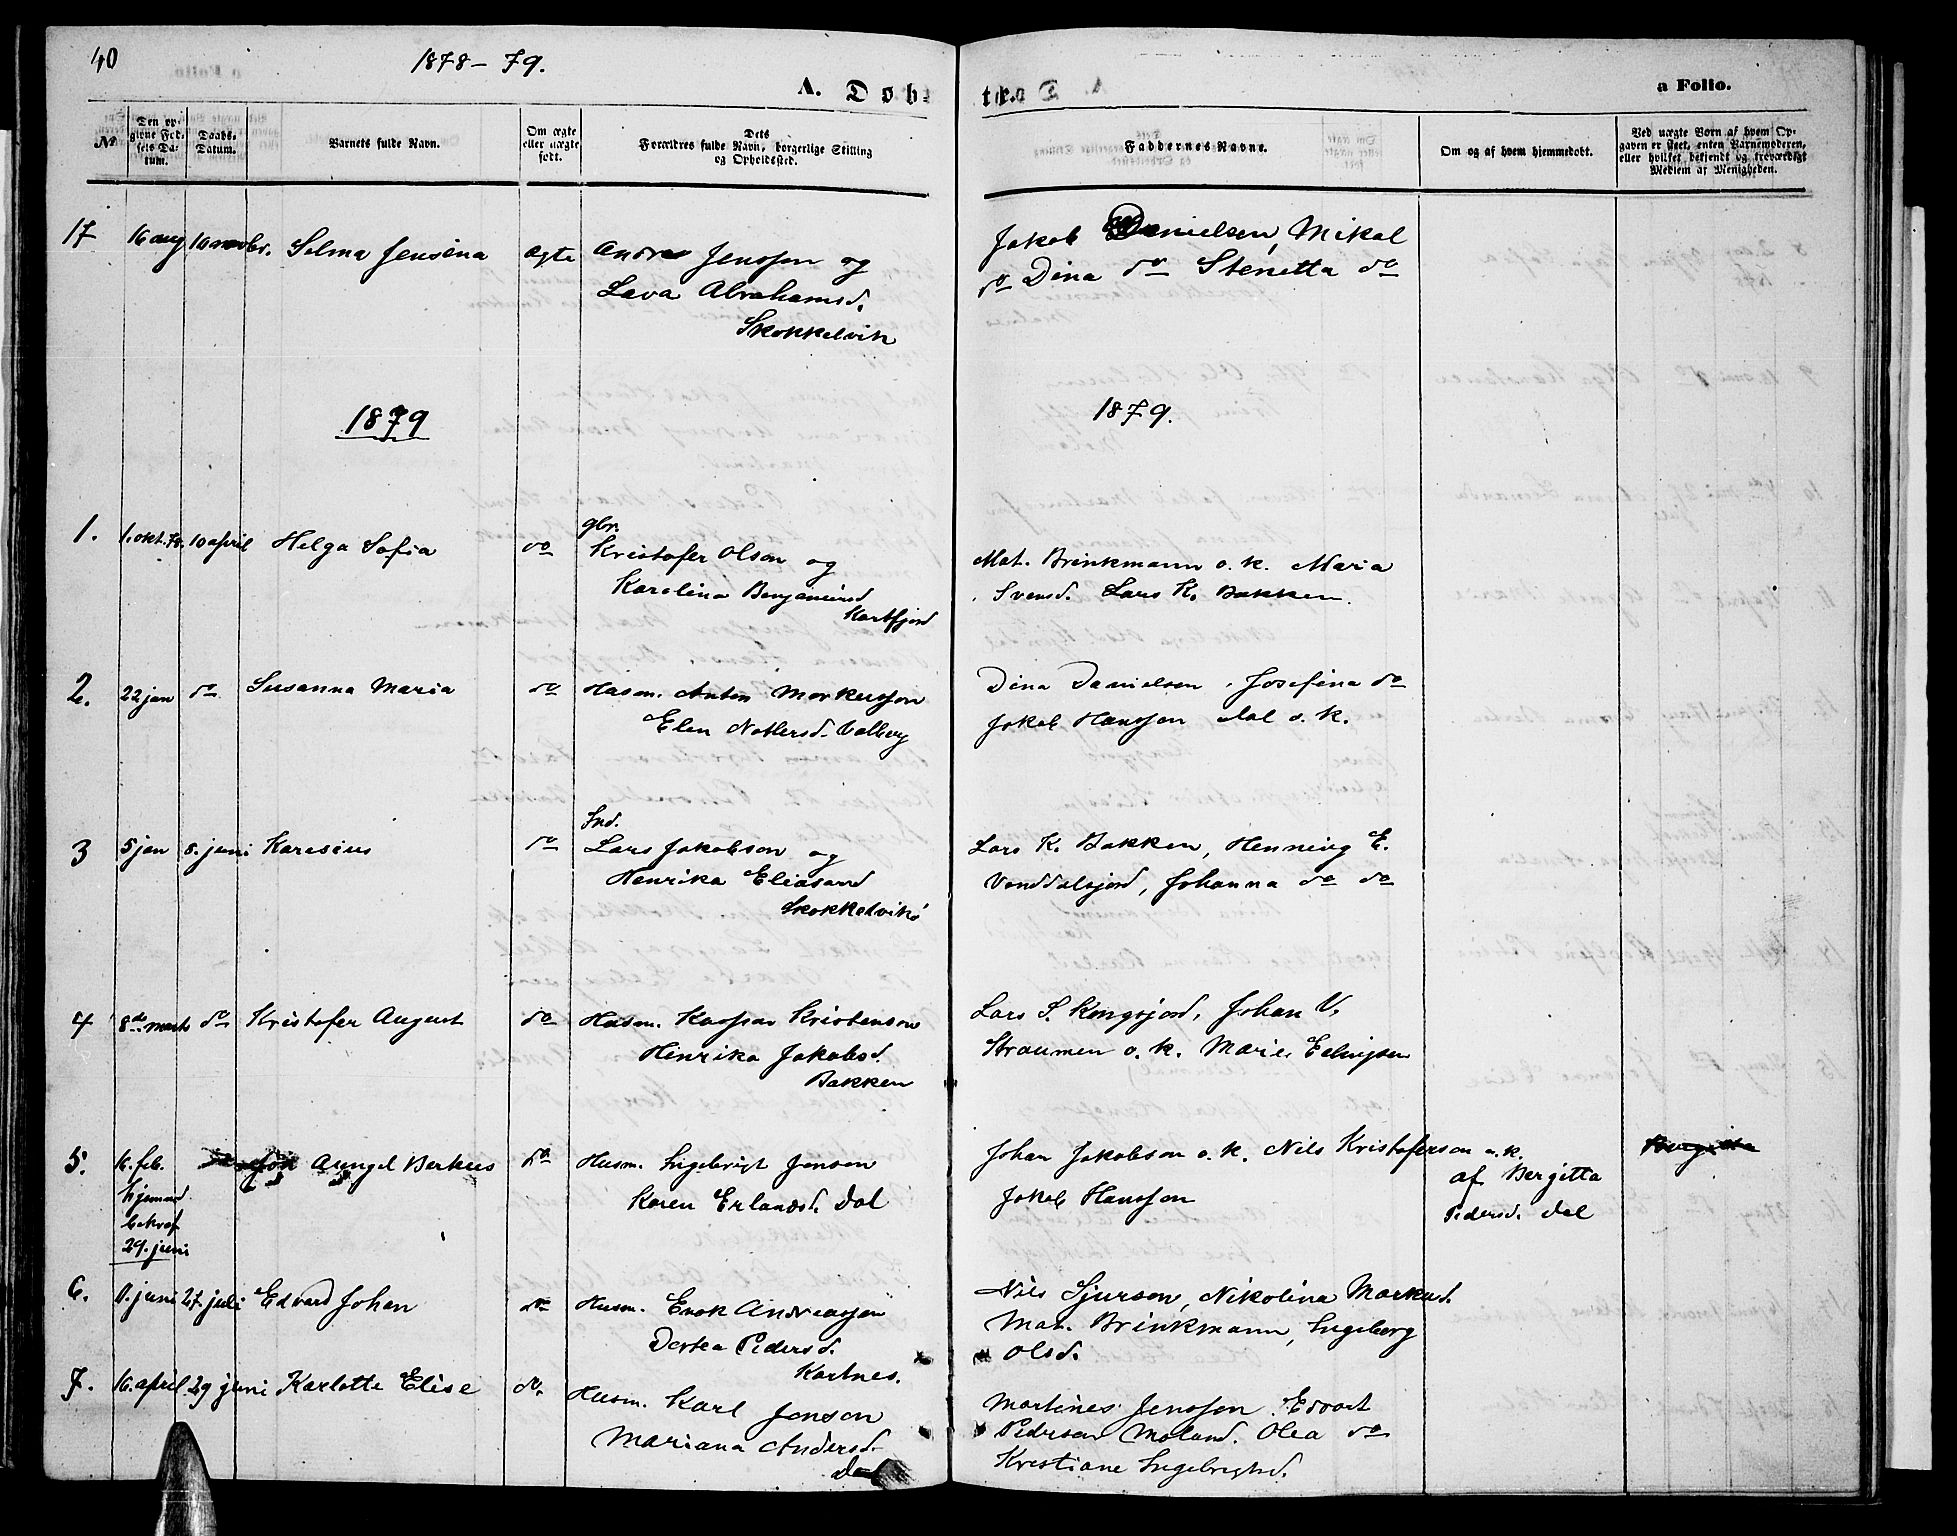 40
1878-79.
A. Døb-
te.
a Folio.
№
Den opgivne Fødsels Datum.
Daabs-Datum.
Barnets fulde Navn.
Om ægte eller uægte født.
Dets Forældres fulde Navn, borgerlige Stilling og Opholdssted.
Faddernes Navne.
Om og af hvem hjemmedøbt.
Ved uægte Børn af hvem Opgaven er skeet, enten Barnemoderen, eller hvilket bekjendt og troværdigt Medlem af Menigheden.
17 16 aug 10 novbr. Selma Jensina ægte Andreas Jenssen og
Lava Abrahamsd.
Skokkelvik
Jakob Danielsen, Mikal
do Dina do Stenetta do
1879
1879.
1. 1. okt. 78. 10 april Helga Sofia do gbr.
Kristofer Olson og
Karolina Benjaminsd
Kartfjord
Mat. Brinkmann o. k. Maria
Svensd. Lars K. Bakken.
2. 22 jan do Susanna Maria do Husm. Anton Markusson
Elen Nottersd. Valberg
Dina Danielsen, Josefina do
Jakob Hansson dal o. k.
3 5 jan 8. juni Karesius do Ind.
Lars Jakobson og
Henrika Eliasand
Skokkelvik
Lars K. Bakken, Henning E.
Vanddalsfjord, Johanna do do
4 8de marts do Kristofer August do Husm. Kaspar Kristenson
Henrika Jakobsd.
Bakken
Lars S. Kongsjord, Johan V.
Straumen o. k. Marie Ellingsen
5. 16. feb. Aungel Berkus do Husm. Ingebrigt Jenson
hjemmed
bekræf
29. juni
Karen Erlandsd. Dal
Johan Jakobson o. k. Nils Kristoferson o. k.
Jakob Hansson
af Bergitta
Pedersd. Dal
6. juni 27. juli Edvard Johan do Husm. Enok Andreassen
Dortea Pedersd.
Kartnes.
Nils Sjurson, Nikolina Markusd.
Mat. Brinkmann, Ingeborg
Olsd.
7. 16. april 29 juni Karlotte Elise do. Husm. Karl Jenson
Mariana Andersd.
Dal
Martines Jensson. Edvart
Pederson Moland. Olea do
Kristiane Ingebrigtsd.